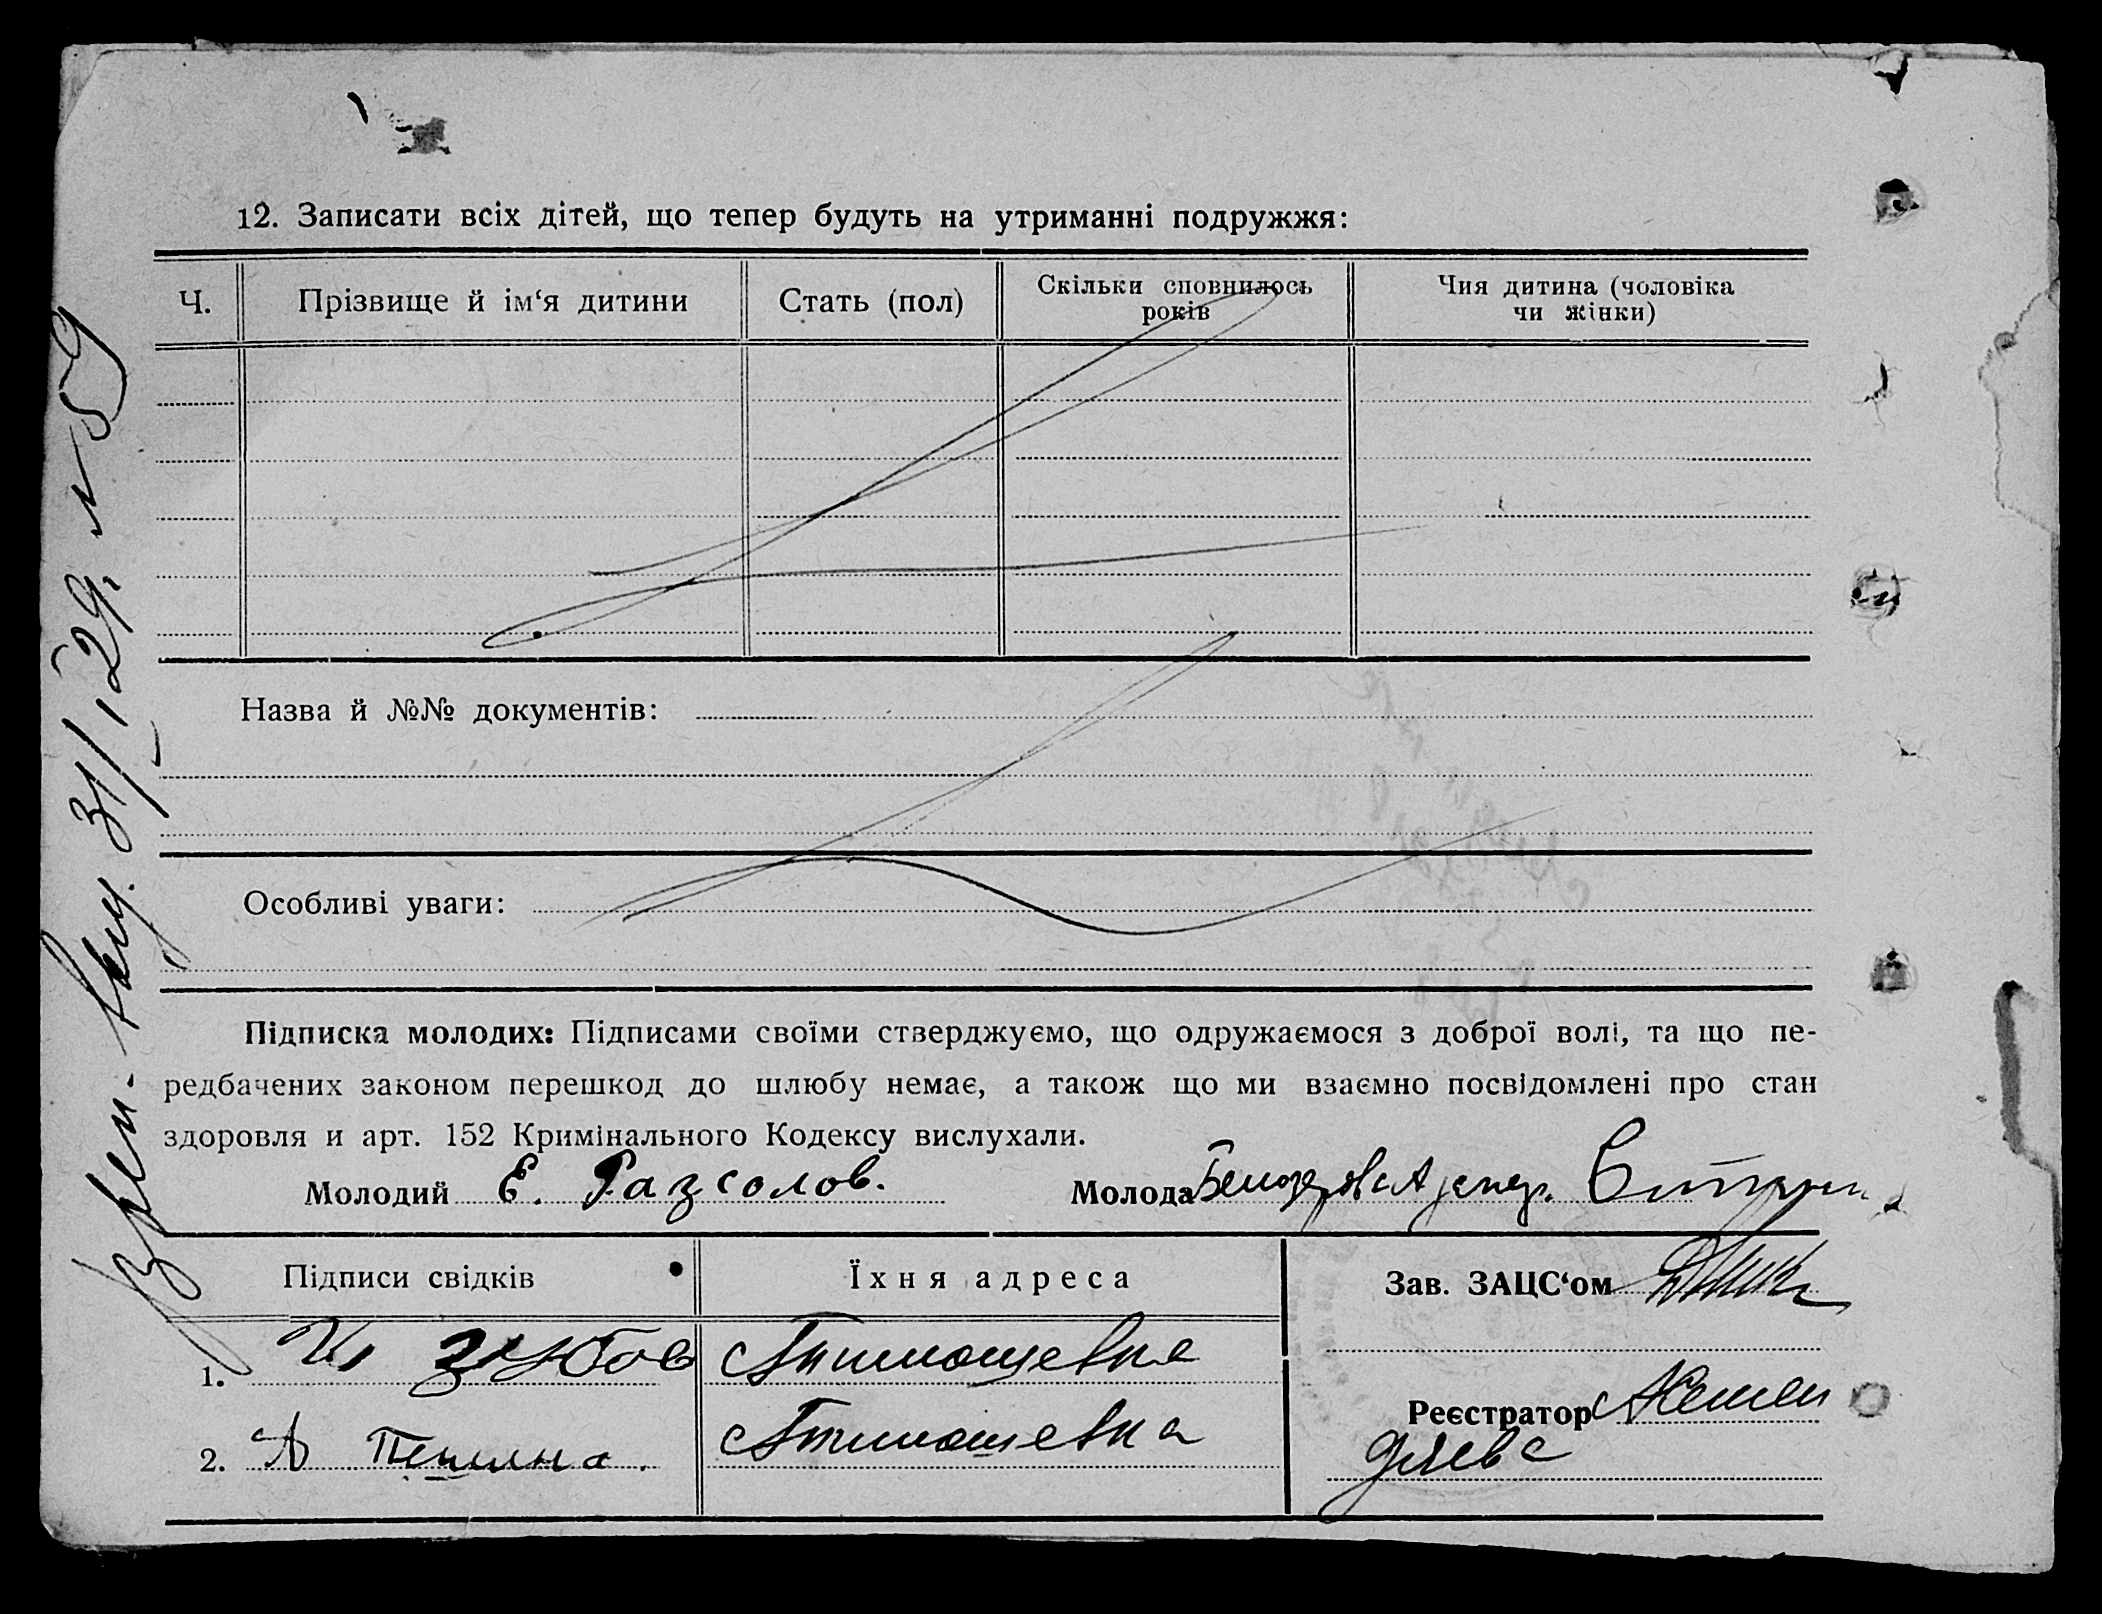 12. Записати всіх дітей, що тепер будуть на утриманні подружжя:
Ч.
Прізвище й ім‘я дитини
Стать (пол)
Скільки сповнилось
років
Чия дитина (чоловіка
чи жінки)
Назва й №№ документів:
Особливі уваги:
Підписка молодих: Підписами своїми стверджуємо, що одружаємося з доброї волі, та що пе-
редбачених законом перешкод до шлюбу немає, а також що ми взаємно посвідомлені про стан
здоровля и арт. 152 Кримінального Кодексу вислухали.
Молодий Е. Разсолов.
Молода
Підписи свідків
Їхня адреса
Зав. ЗАЦС‘ом
1. И Зубов
Реєстратор
2. А
31/1 29